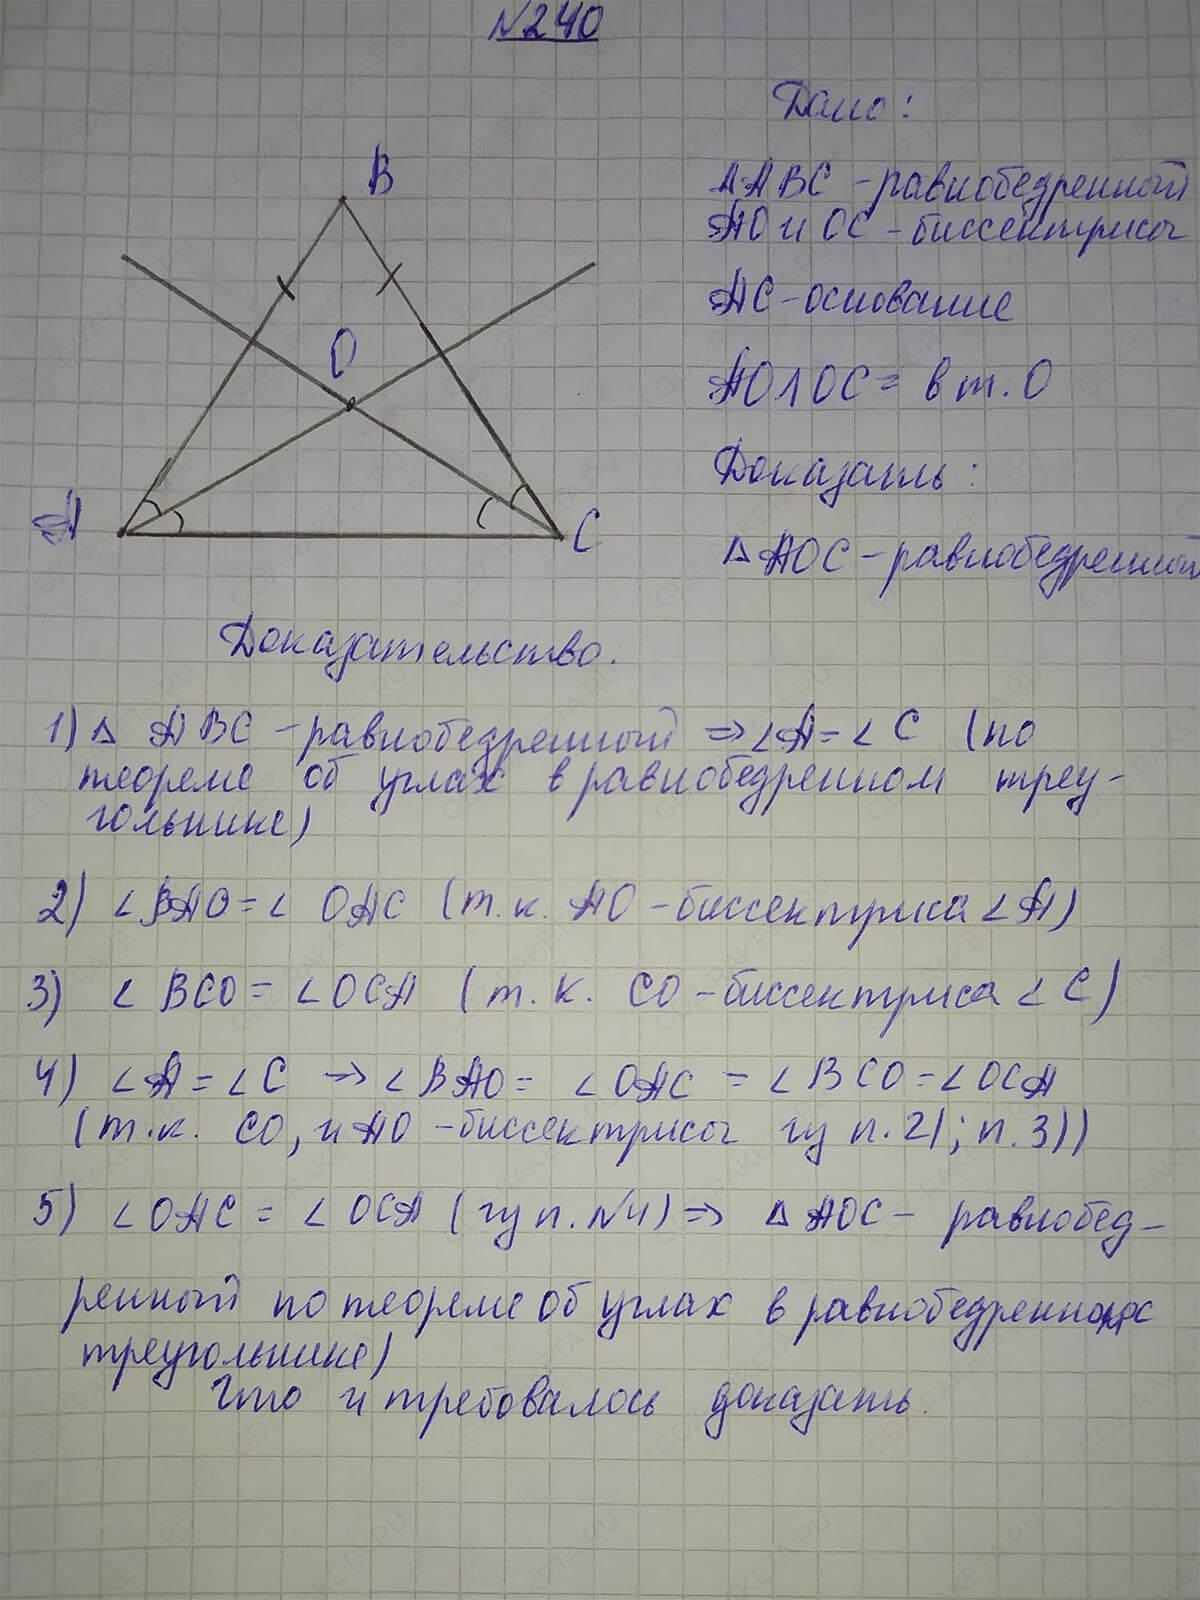 №240
Дано:
B
∆ABC - равнобедренный
AO и OC - биссектрисы
AC - основание
O
AO∧OC = в т. O
Доказать:
A
C
∆AOC - равнобедренный
Доказательство.
1) ∆ ABC - равнобедренный => ∠A = ∠C (по
теореме об углах в равнобедренном треу-
гольнике)
2) ∠BAO = ∠ OAC (т.к. AO - биссектриса ∠A)
3) ∠ BCO = ∠OCA (т.к. CO - биссектриса ∠C)
4) ∠A = ∠C => ∠BAO = ∠OAC = ∠BCO = ∠OCA
(т.к. CO, и AO - биссектрисы из п.2); п.3))
5) ∠OAC = ∠OCA (из п.№4) => ∆AOC - равнобед-
ренный по теореме об углах в равнобедренном
треугольнике)
Что и требовалось доказать.